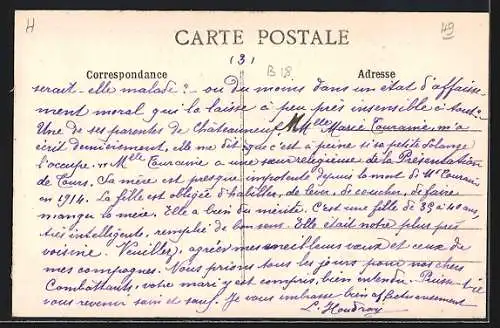 H
49
CARTE POSTALE
(3)
B 18
Correspondance
Adresse
serait-elle malade? – ou du moins dans un état d'affaisse-
ment moral qui la laisse à peu près insensible à tout?
Une de ses parentes de Châteauneuf, Melle Marie Touraine, m'a
écrit dernièrement, elle me dit que c'est à peine si sa petite Solange
l'occupe. Melle Touraine a une sœur religieuse de la Présentation
de Tours. Sa mère est presque impotente depuis la mort de Mr Touraine
en 1914. La fille est obligée d'habiller, de lever, de coucher, de faire
manger la mère. Elle a bien du mérite. C'est une fille de 35 à 40 ans,
très intelligente, remplie de bon sens. Elle était notre plus près
voisine. Veuillez, agréer mes meilleurs vœux et ceux de
mes compagnes. Nous prions tous les jours pour nos chers
Combattants, votre mari y est compris, bien entendu. Puisse-t-il
vous revenir sain et sauf. Je vous embrasse bien affectueusement
L. Houdroy